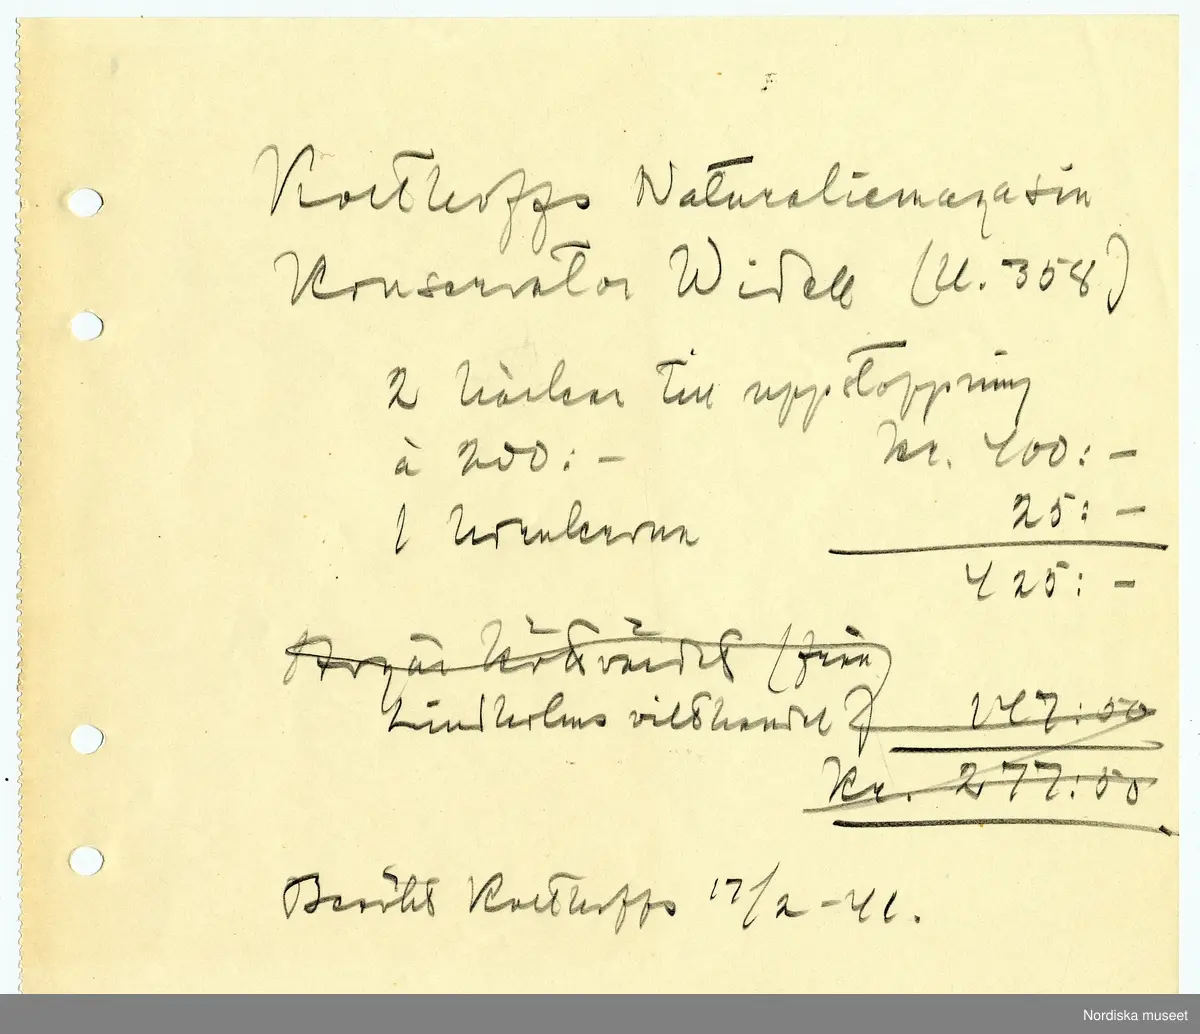 Kolthoffs Naturaliemagasin
Konservator Widell (U. 358)
2 till uppstoppning
à 200:- kr. 400:-
1 25:-
425:-
Avgår köttvärdet (från
Lindholms vilthandel) 147:50
Kr. 277:50
Besökt Kolthoffs 17/2 -41.
Nordiska museet